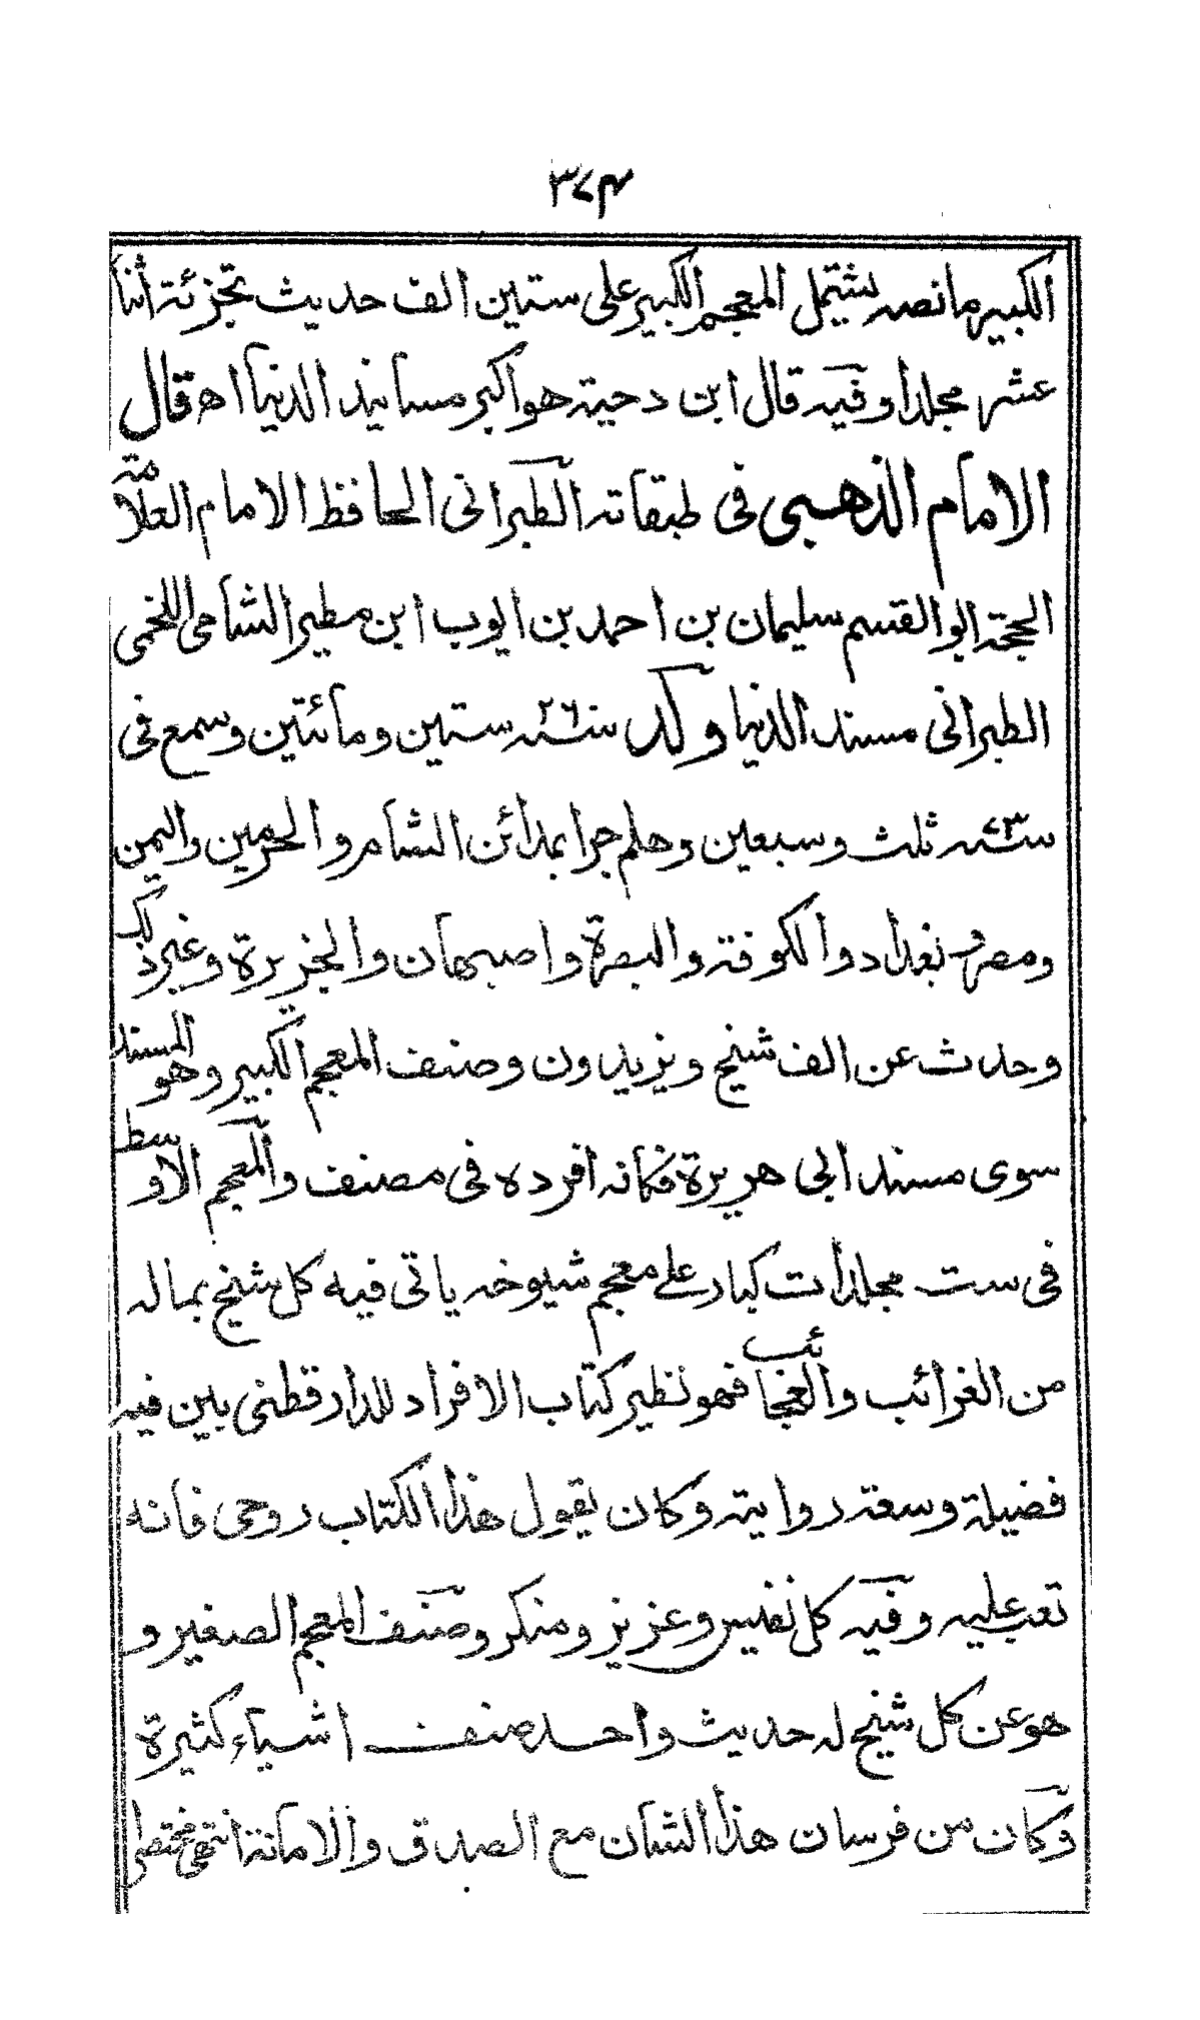 ٣٧٤
الكبير ما نصه يشتمل المعجم الكبير على ستين الف حديث تجزئة أثنا
عشر مجلدا وفيه قال ابن دحية هو اكبر مسانيد الدنيا اه قال
الامام الذهبي في طبقاته الطبراني الحافظ الامام العلامة
الحجة ابو القسم سليمان بن احمد بن ايوب ابن مطير الشامي اللخمي
الطبراني مسند الدنيا ولد سنة ٢٦٠ ستين ومائتين وسمع في
سنة ٧٣ ثلث وسبعين وهلم جرا بمدائن الشام والحرمين واليمن
ومصر وبغداد والكوفة والبصرة واصبهان والجزيرة وغير ذلك
وحدث عن الف شيخ ويزيدون وصنف المعجم الكبير وهو المسند
سوى مسند ابي هريرة فكانه افرده في مصنف والمعجم الاوسط
في ست مجلدات كبار على معجم شيوخه ياتي فيه كل شيخ بماله
من الغرائب والعجائب فهو نظير كتاب الافراد للدارقطني بين فيه
فضيلة وسعة روايته وكان يقول هذا الكتاب روحي فانه
تعب عليه وفيه كل نفيس وعزيز ومنكر وصنف المعجم الصغير و
هو عن كل شيخ له حديث واحد صنف اشياء كثيرة
وكان من فرسان هذا الشان مع الصدق والامانة انتهى مختصرا